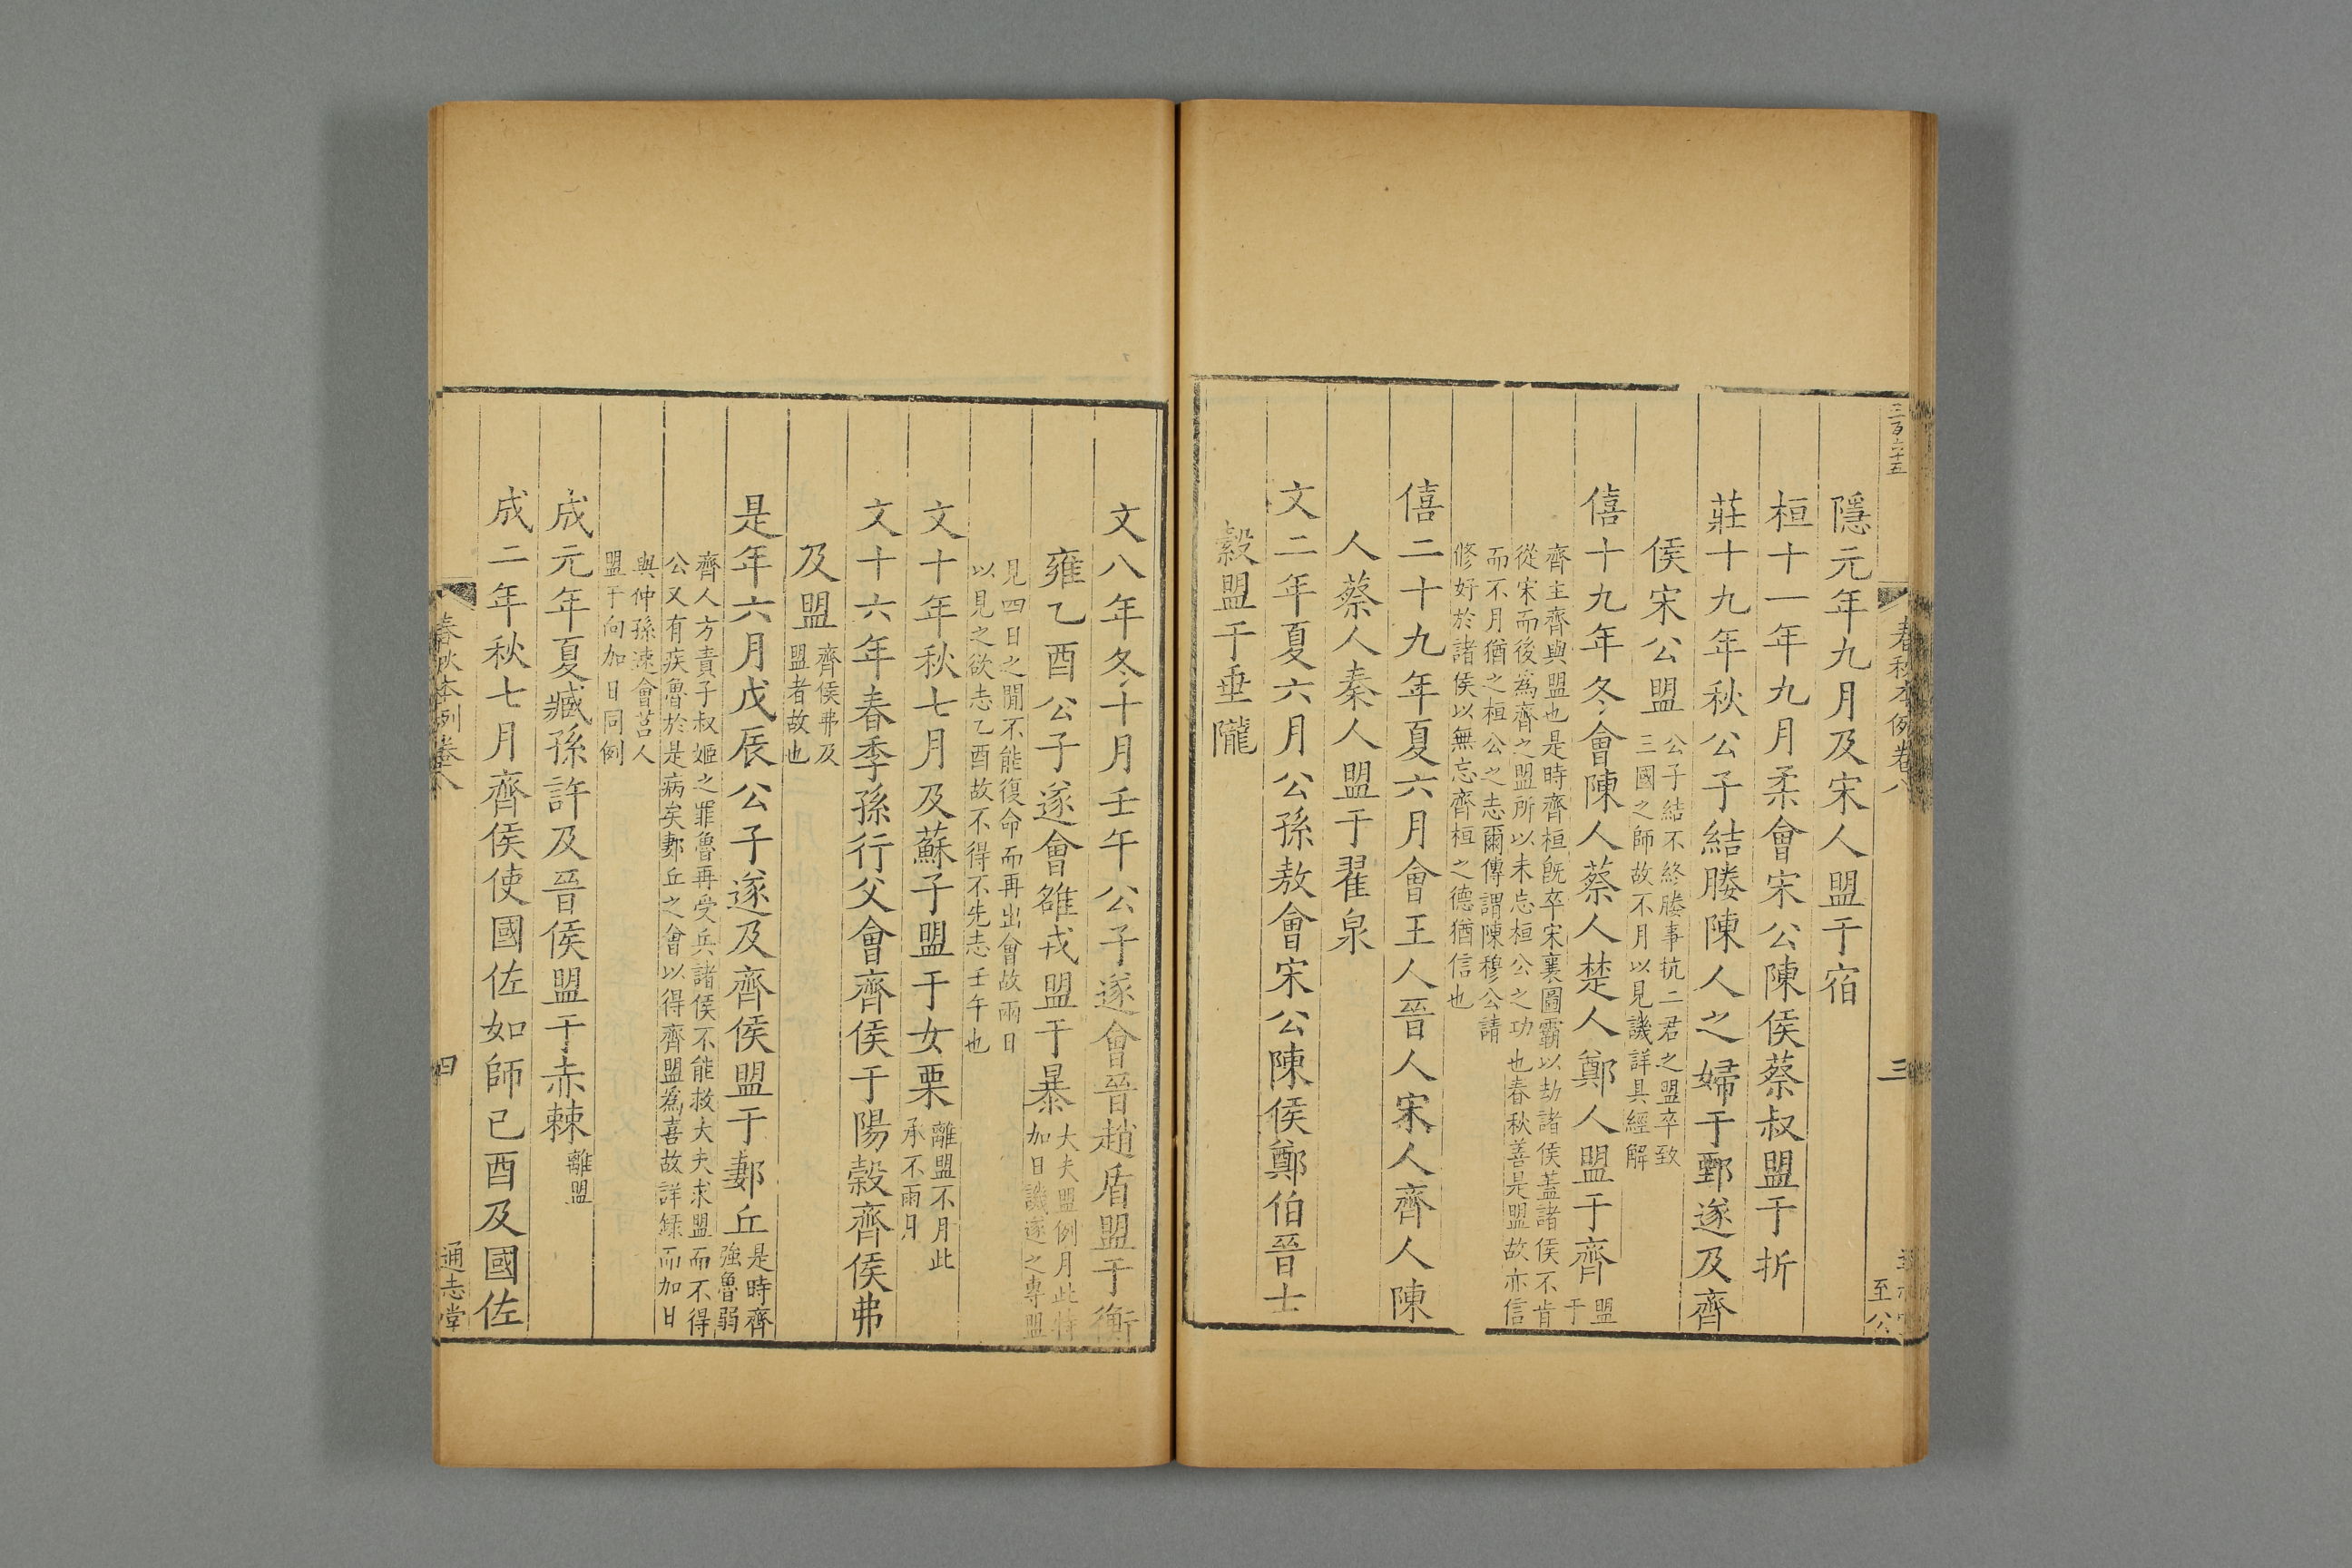 三百六十五
春秋本例卷八
三
至公
隱元年九月及宋人盟于宿
桓十一年九月柔會宋公陳侯蔡叔盟于折
莊十九年秋公子結媵陳人之婦于鄄遂及齊
侯宋公盟公子結不終媵事抗二君之盟卒致三國之師故不月以見譏詳具經解
僖十九年冬會陳人蔡人楚人鄭人盟于齊盟于
齊主齊與盟也是時齊桓旣卒宋襄圖霸以劫諸侯蓋諸侯不肯
從宋而後爲齊之盟所以未忘桓公之功也春秋善是盟故亦信
而不月猶之桓公之志爾傳謂陳穆公請
修好於諸侯以無忘齊桓之德猶信也
僖二十九年夏六月會王人晉人宋人齊人陳
人蔡人秦人盟于翟泉
文二年夏六月公孫敖會宋公陳侯鄭伯晉士
縠盟于垂隴
文八年冬十月壬午公子遂會晉趙盾盟于衡
雍乙酉公子遂會雒戎盟于暴大夫盟例月此特加日譏遂之專盟
見四日之閒不能復命而再出會故兩日
以見之欲志乙酉故不得不先志壬午也
文十年秋七月及蘇子盟于女栗離盟不月此承不雨月
文十六年春季孫行父會齊侯于陽穀齊侯弗
及盟齊侯弗及盟者故也
是年六月戊辰公子遂及齊侯盟于郪丘是時齊強魯弱
齊人方責子叔姬之罪魯再受兵諸侯不能救大夫求盟而不得
公又有疾魯於是病矣郪丘之會以得齊盟爲喜故詳録而加日
與仲孫速會莒人
盟于向加日同例
成元年夏臧孫許及晉侯盟于赤棘離盟
成二年秋七月齊侯使國佐如師已酉及國佐
春秋本例卷八
四
通志堂